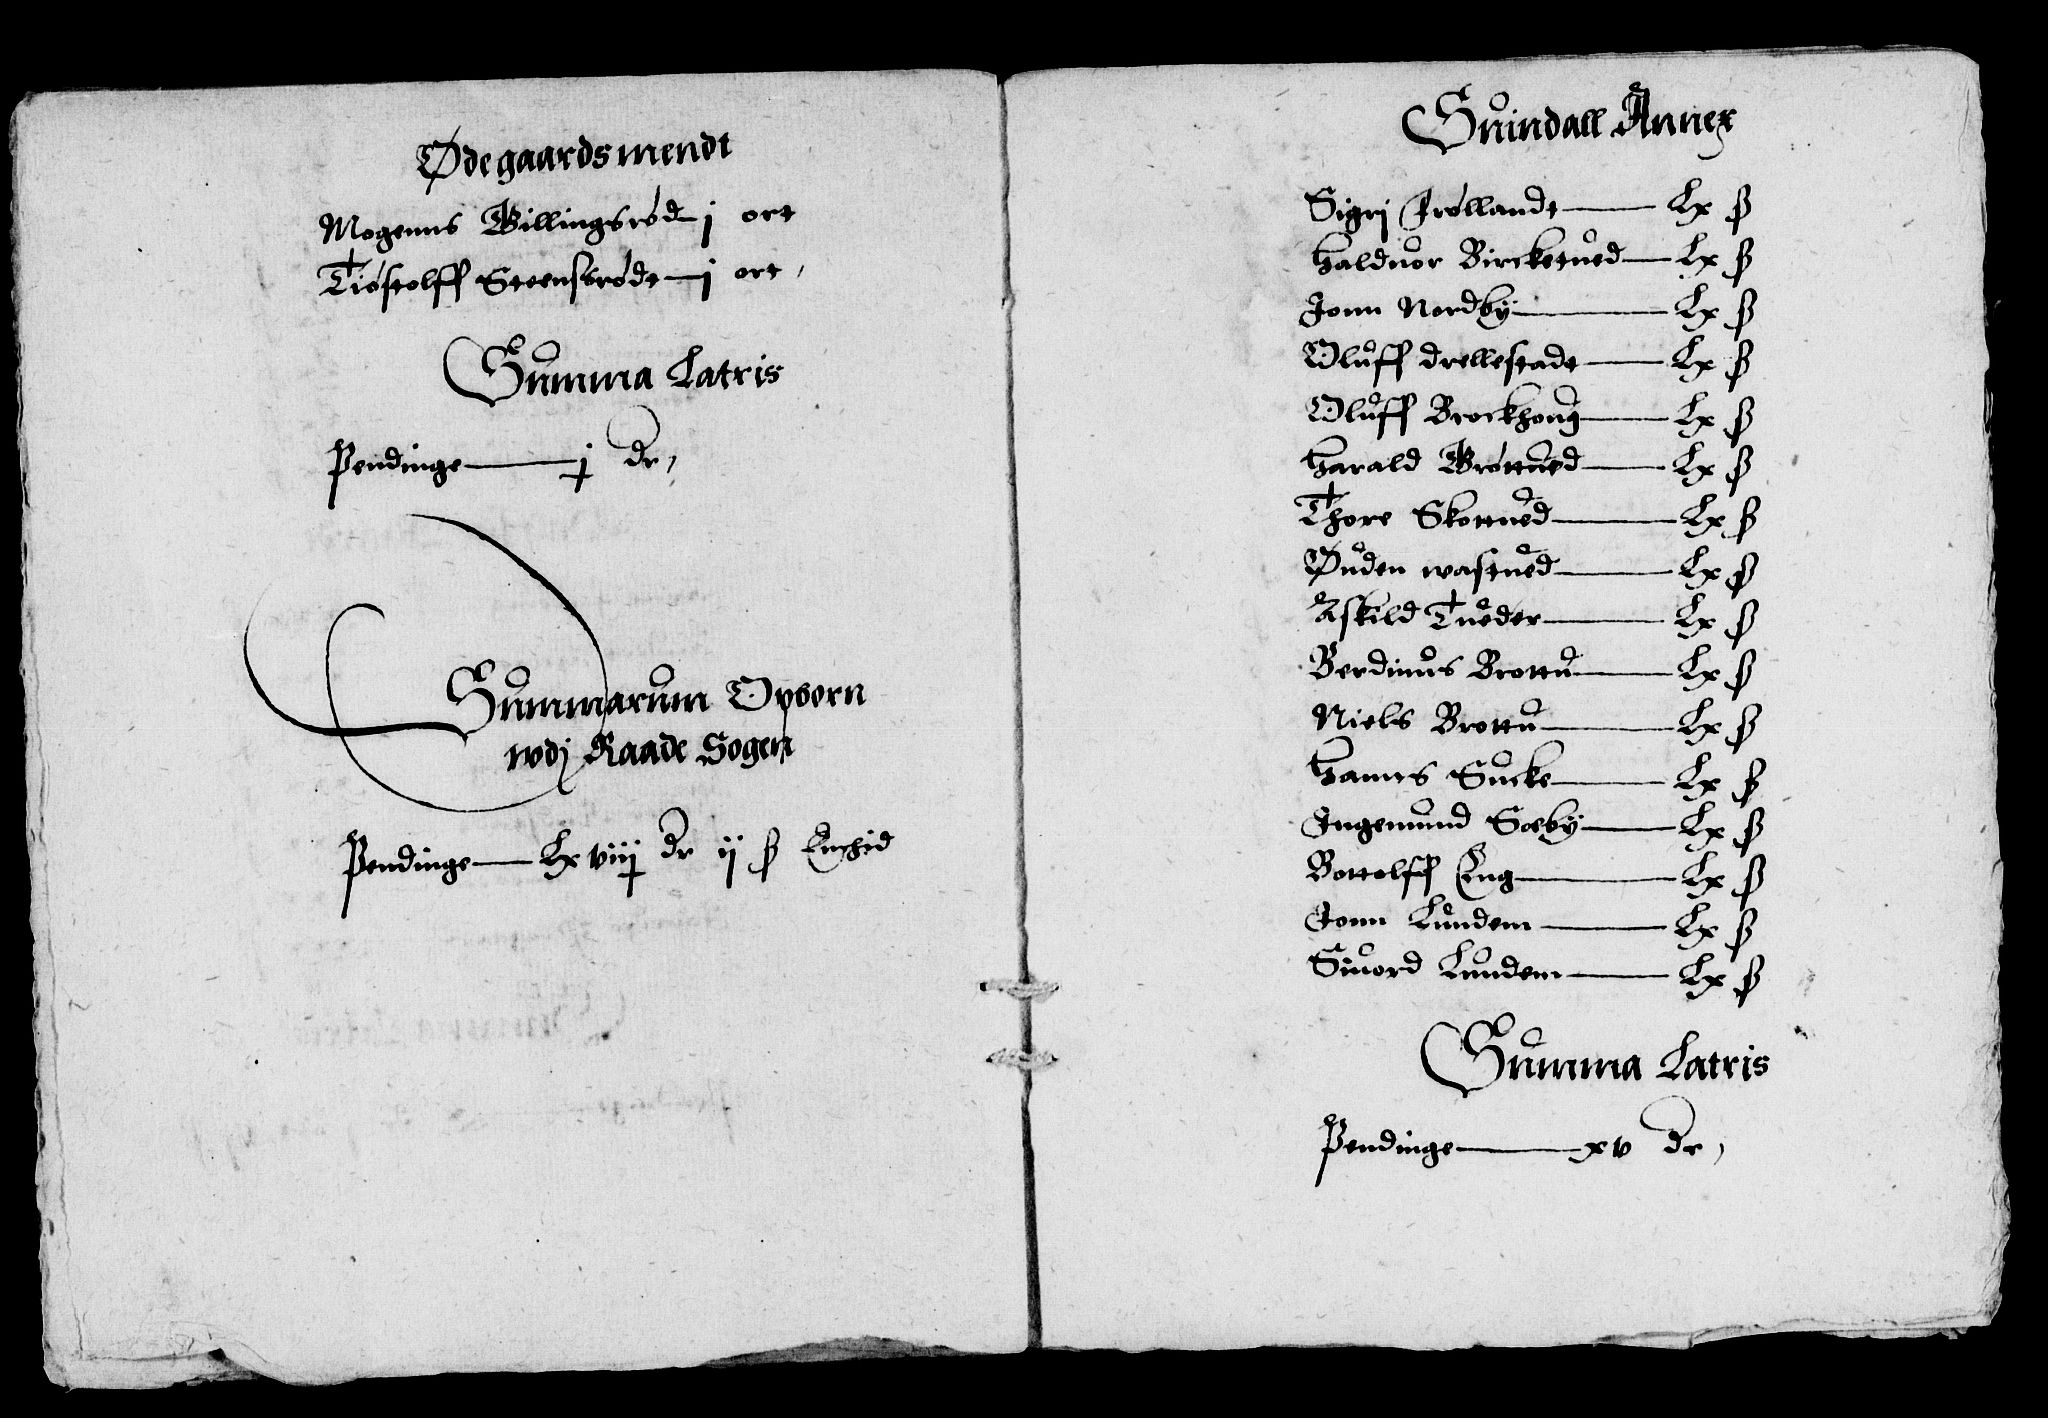 Ødegaardsmendt
Mogenns Billingsrød j ort
Tiøstolff Steensrødt j ort
Summa Latris
Pendinge j dr
Summarum Opborn
wdj Raade Sogen
Pendinge Lxviij dr ij ß
Suindall Annex
Sigrj Frøllandt Lx ß
Halduor Bircketued Lx ß
Jonn Nordby Lx ß
Oluff drellestadt Lx ß
Oluff Brockhoug Lx ß
Harald Brøttued Lx ß
Thore Skottued Lx ß
Øuden wastued Lx ß
Askild Tueder Lx ß
Berdinus Brottu Lx ß
Niels Brottu Lx ß
Hanns Sucke Lx ß
Ingemund Soeby Lx ß
Bottolff Eng Lx ß
Jonn Lundem Lx ß
Siuord Lundem Lx ß
Summa Latris
Pendinge xv dr